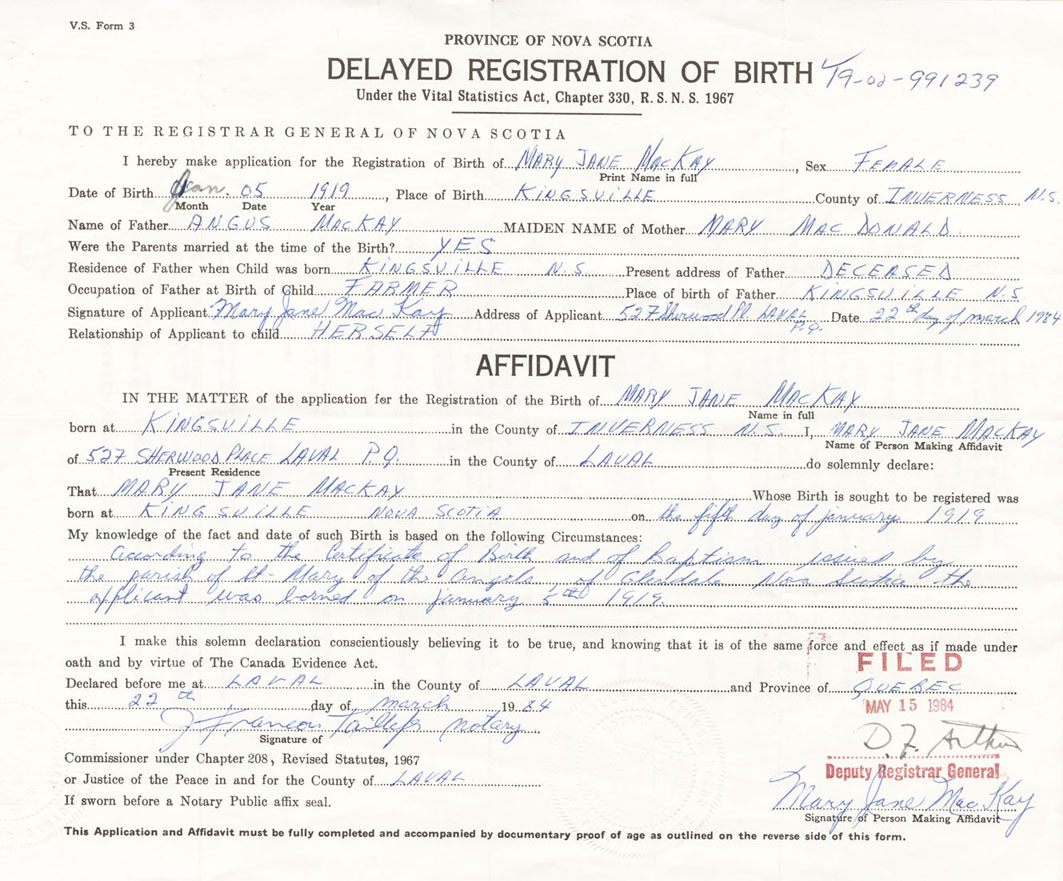 V.S. Form 3
PROVINCE OF NOVA SCOTIA
DELAYED REGISTRATION OF BIRTH 19-02-991239
Under the Vital Statistics Act, Chapter 330, R.S.N.S. 1967
TO THE REGISTRAR GENERAL OF NOVA SCOTIA
I hereby make application for the Registration of Birth of MARY JANE MACKAY, Sex FEMALE
Print Name in full
Date of Birth Jan. 05 1919, Place of Birth KINGSVILLE County of INVERNESS N.S.
Month Date Year
Name of Father ANGUS MACKAY MAIDEN NAME of Mother MARY MAC DONALD
Were the Parents married at the time of the Birth? YES
Residence of Father when Child was born KINGSVILLE N.S. Present address of Father DECEASED
Occupation of Father at Birth of Child FARMER Place of birth of Father KINGSVILLE N.S.
Signature of Applicant Mary Jane Mac Kay Address of Applicant 527 Sherwood Pl LAVAL P.Q. Date 22th day of march 1984
Relationship of Applicant to child HERSELF
AFFIDAVIT
IN THE MATTER of the application for the Registration of the Birth of MARY JANE MACKAY
Name in full
born at KINGSVILLE in the County of INVERNESS N.S. I, MARY JANE MACKAY
Name of Person Making Affidavit
of 527 SHERWOOD PLACE LAVAL P.Q. in the County of LAVAL do solemnly declare:
Present Residence
That MARY JANE MACKAY Whose Birth is sought to be registered was
born at KINGSVILLE NOVA SCOTIA on the fifth day of january 1919
My knowledge of the fact and date of such Birth is based on the following Circumstances:
According to the Certificate of Birth and of Baptism issied by
the parish of St-Mary of the Angels of Glendale Nova Scotia the
applicant was borned on january 5th 1919.
I make this solemn declaration conscientiously believing it to be true, and knowing that it is of the same force and effect as if made under
oath and by virtue of The Canada Evidence Act.
FILED
Declared before me at LAVAL in the County of LAVAL and Province of QUEBEC
this 22th day of march 1984
MAY 15 1984
notary
Signature of
D.F. Arthur
Commissioner under Chapter 208, Revised Statutes, 1967
Deputy Registrar General
or Justice of the Peace in and for the County of LAVAL
Mary Jane Mac Kay
If sworn before a Notary Public affix seal.
Signature of Person Making Affidavit
This Application and Affidavit must be fully completed and accompanied by documentary proof of age as outlined on the reverse side of this form.